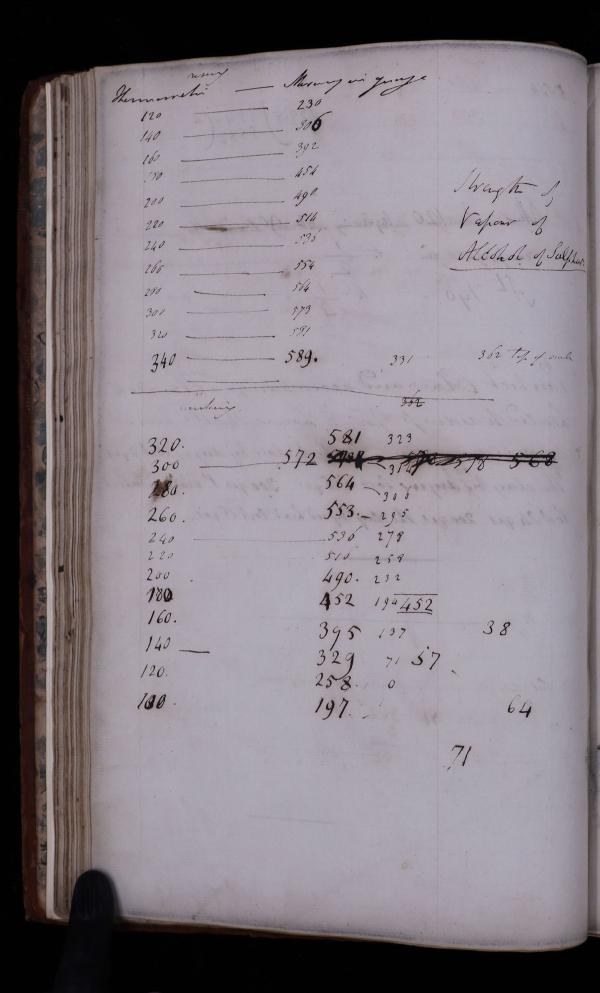 rising
Thermometer — Mercury in gauge
120 — 230
140 — 306
160 — 392
180 — 454
200 — 490
220 — 514
240 — 535
260 — 554
280 — 564
300 — 573
320 — 581
340 — 589. 331 362 top of
Strength of
Vapour of
Alcohol of Sulphur
362
sinking
320. 581 323
300 — 572 578 568
280. 564 — 306
260. 553. — 295
240 — 536 278
220 510 258
200 490. 232
180 452 194 452
160. 395 137 38
140 — 329 71 57
120. 258. 0
100. 197. 64
71